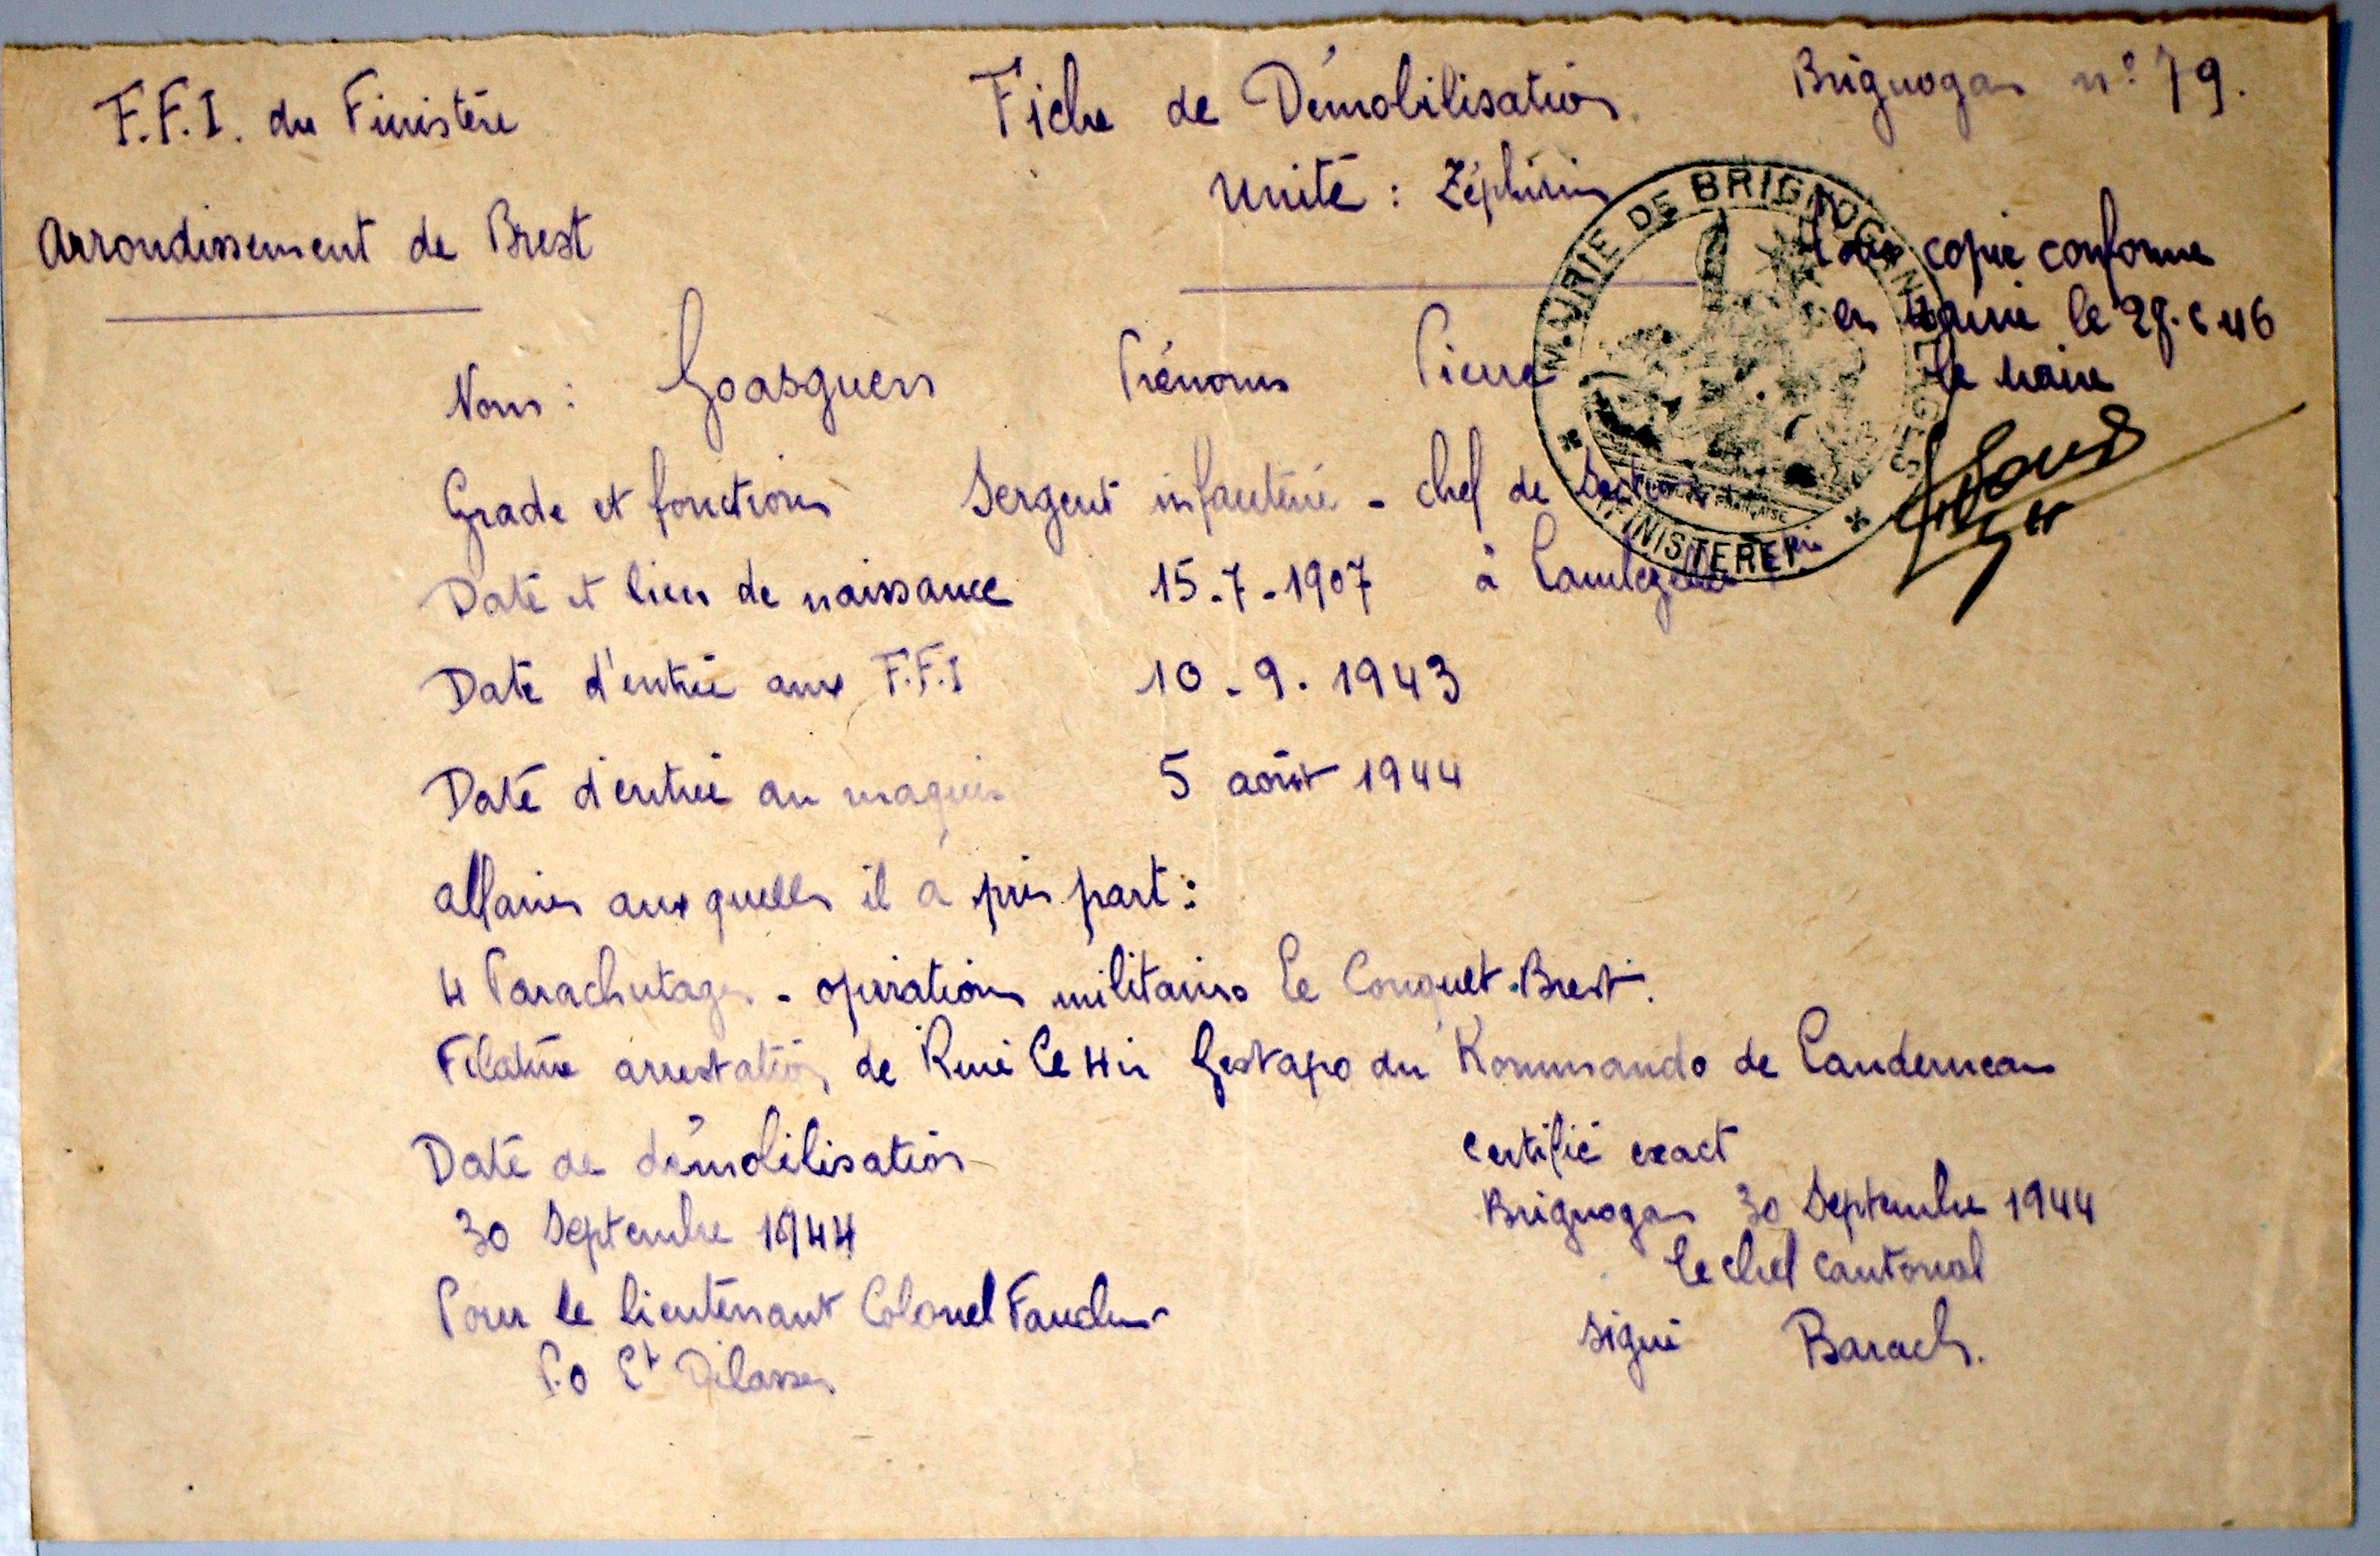 F.F.I. du Finistère
Arrondissement de Brest
Fiche de Démobilisation
Unité : Zéphirin
Brignogan n° 79.
MAIRIE DE BRIGNOGAN PLAGES
(FINISTERE)
Pour copie conforme
en Mairie le 28.6 46
le maire
Nom : Goasguen Prénoms Pierre
Grade et fonctions Sergent infanterie - chef de Section
Date et lieu de naissance 15-7-1907 à Lambézellec
Date d'entrée aux F.F.I 10-9.1943
Date d'entrée au maquis 5 août 1944
affaires auxquelles il a pris part :
4 Parachutages - opérations militaires Le Conquet-Brest.
Filature arrestation de René Le Hir Gestapo du Kommando de Landerneau
Date de démobilisation
30 Septembre 1944
Pour le lieutenant Colonel Faucher
P.O Lt Dilasser
certifié exact
Brignogan 30 Septembre 1944
le chef cantonal
signé Barach.